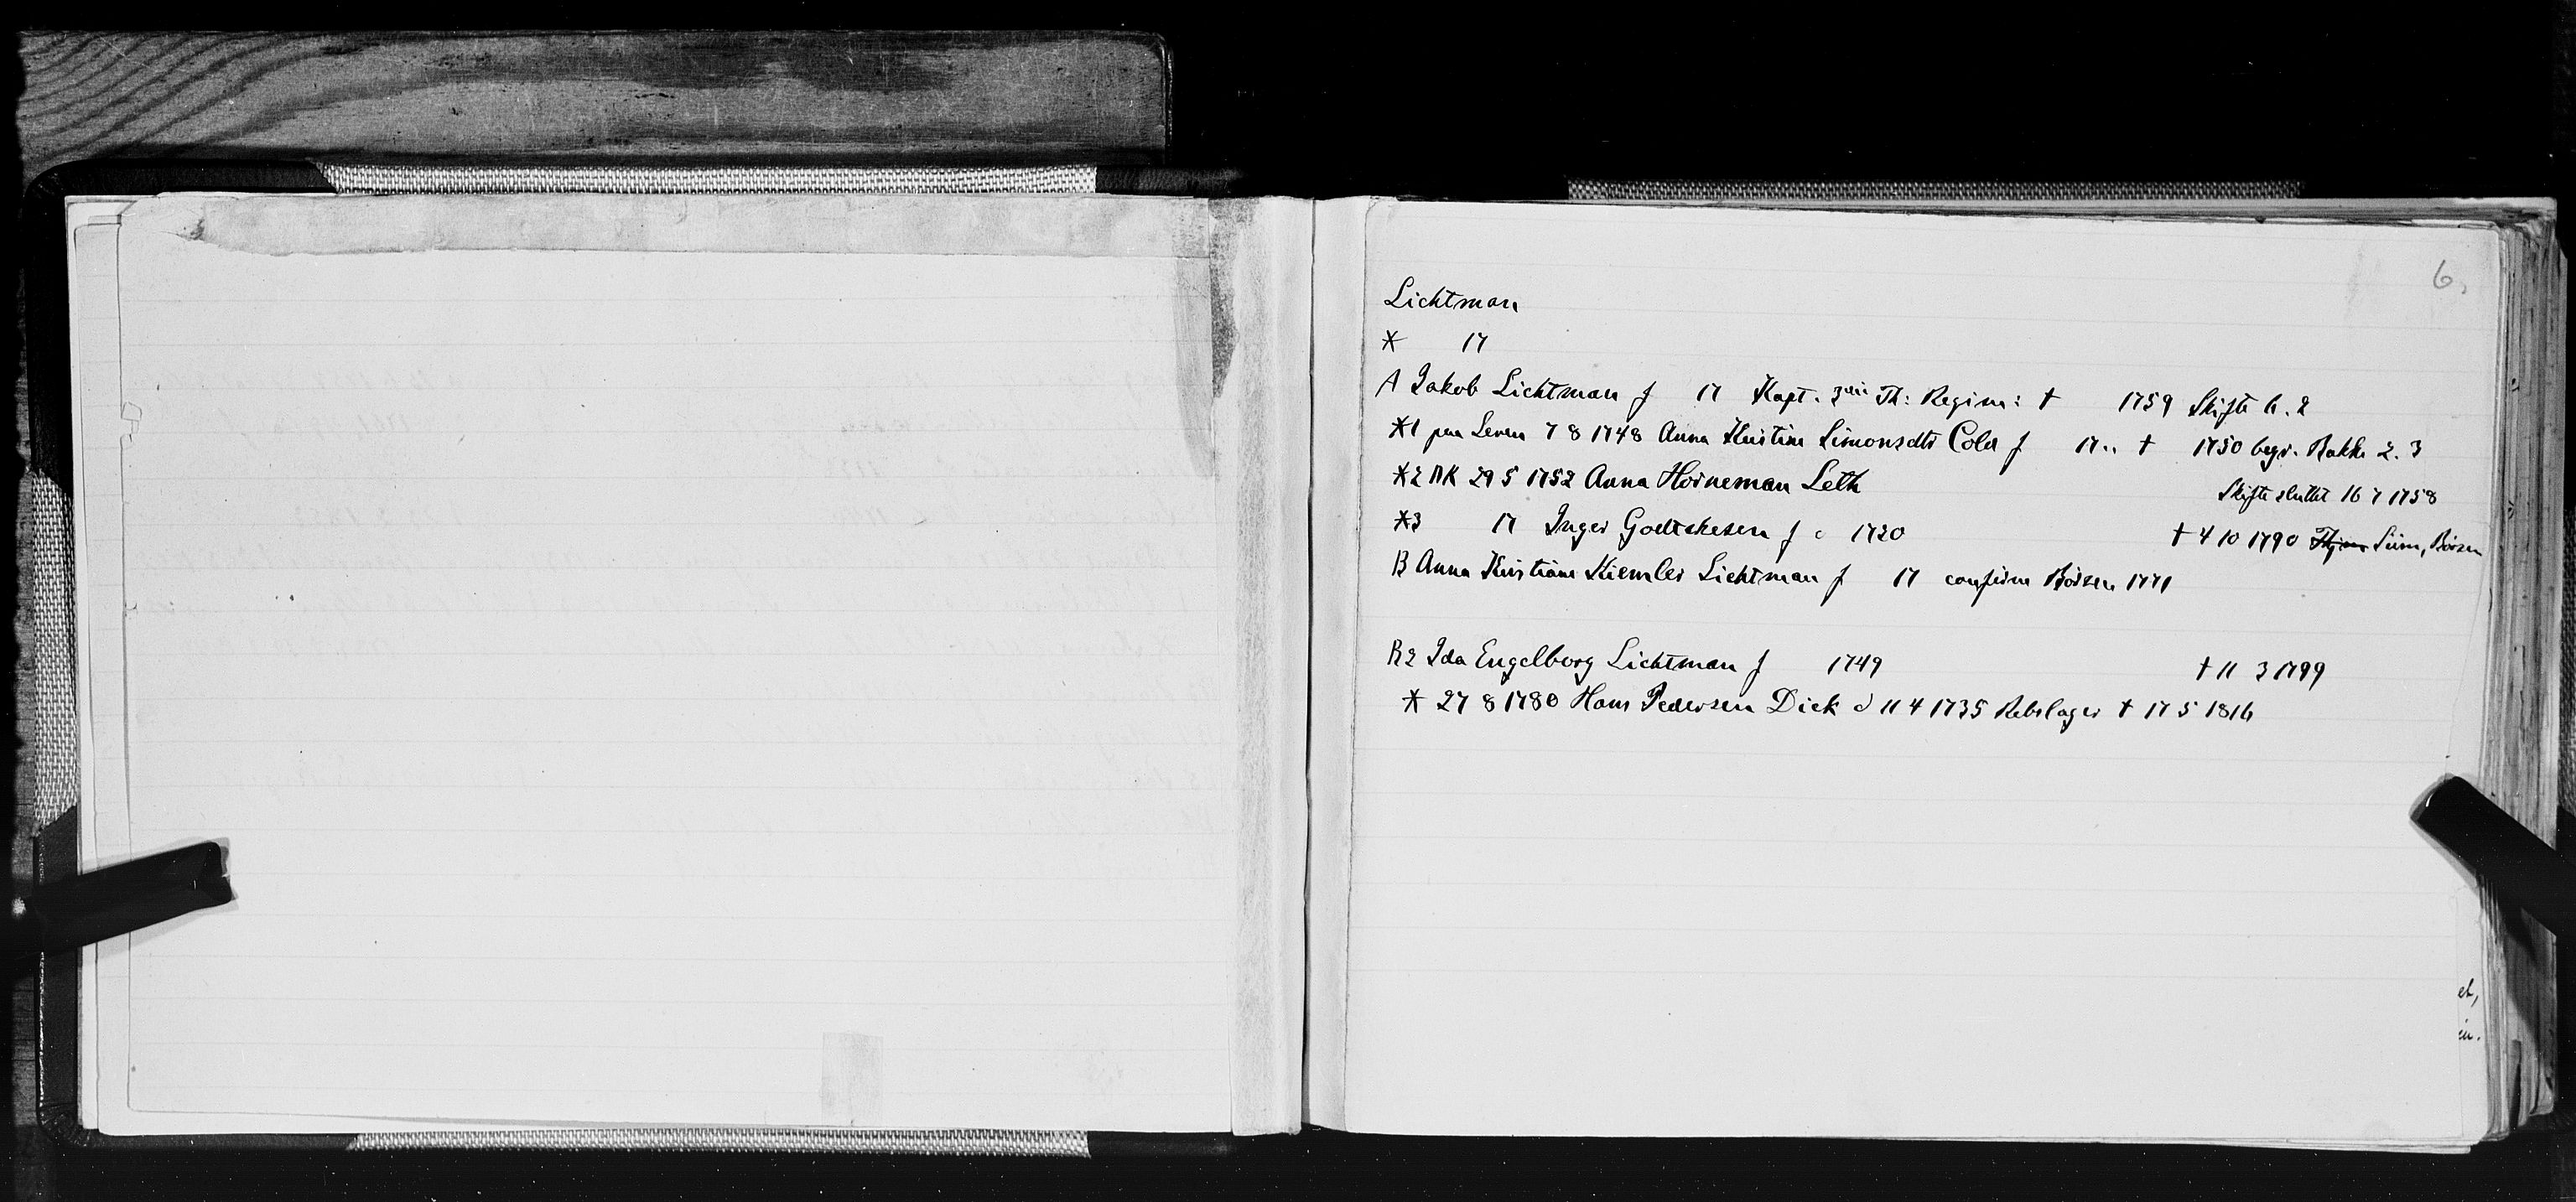 6.
Lichtman
* 17
A Jakob Lichtman f 17 Kapt. 3die Th: Regim: † 1759 Skifte 6.2
*1 paa Leren 7 8 1748 Anna Kristine Simonsdtr Cold f 17.. † 1750 begr. Bakke 2.3
*2 DK 29 5 1752 Anna Horneman Leth Skifte sluttet 16 7 1758
*3 17 Inger Godtskesen f c 1720 † 4 10 1790 Siim, Börsen
B Anna Kristiane Kiemler Lichtman f 17 confirm Börsen 1771
B2 Ida Engelborg Lichtman f 1749 † 11 3 1799
* 27 8 1780 Hans Pedersen Dick d 11 4 1735 Rebslager † 17 5 1816
et,